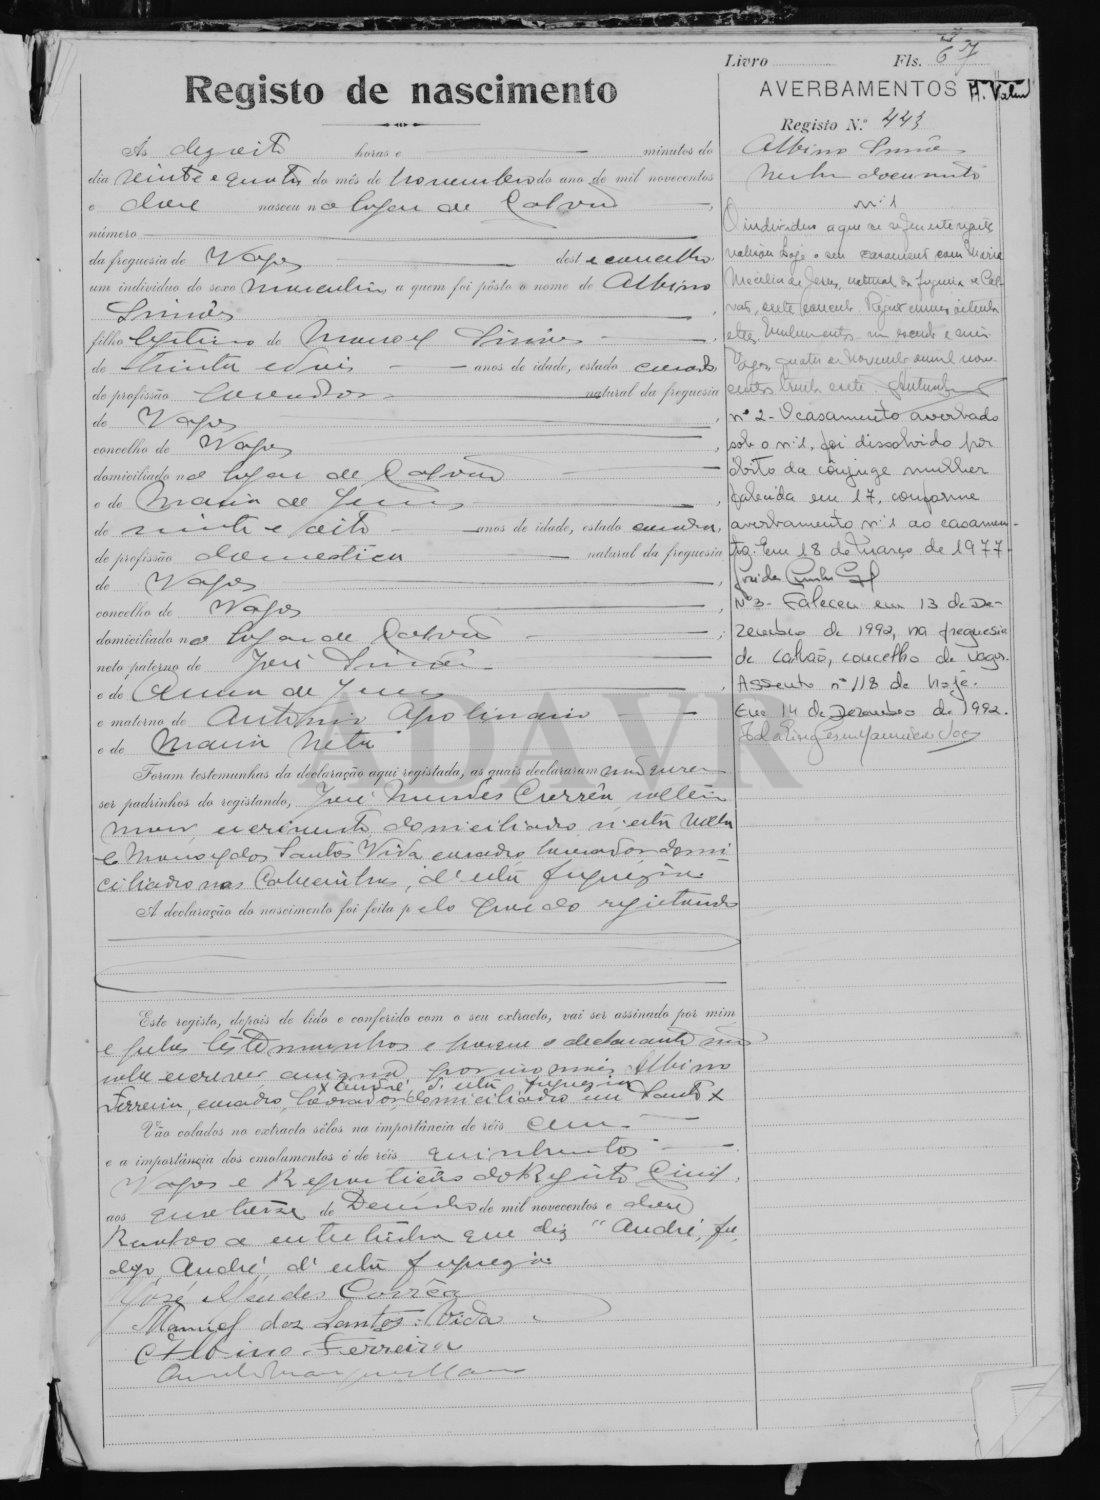 Livro Fls. 67
Registo de nascimento
AVERBAMENTOS
Registo N.º 443
Albino Simões
Às dezoito horas e minutos do
dia vinte e quatro do mês de novembro do ano de mil novecentos
e doze nasceu no lugar de Calvão
número
da freguesia de Vagos deste concelho
um indivíduo do sexo masculino a quem foi pôsto o nome de Albino
Simões
filho legitimo de Manoel Simões
de trinta e dois anos de idade, estado casado
de profissão lavrador natural da freguesia
de Vagos
concelho de Vagos
domiciliado no lugar de Calvão
e de Maria de Jesus
de vinte e oito anos de idade, estado casada,
de profissão domestica natural da freguesia
de Vagos
concelho de Vagos
domiciliado no lugar de Calvão
neto paterno de José Simões
e de Anna de Jesus
e materno de Antonio Apolinario
e de Maria Neta
Foram testemunhas da declaração aqui registada, as quais declararam não querer
ser padrinhos do registando, José Mendes Corrêa, solteiro
maior, escrivente, domiciliado n'esta villa
e Manoel dos Santos Vida, casado, lavrador, domi-
ciliado nas , d'esta freguezia.
A declaração do nascimento foi feita pelo pae do registando
Este registo, depois de lido e conferido com o seu extracto, vai ser assinado por mim
e pelas testemunhas e porque o declarante não
sabe escrever, assigna por Albino
x André, d'esta freguezia
Ferreira, casado, lavrador, domiciliado em Santo x
Vão colados no extracto sêlos na importância de réis cem
e a importância dos emolumentos é de réis quinhentos
Vagos e Repartição do Registo Civil,
aos quatorze de Dezembro de mil novecentos e doze
a entrelinha que diz "André,
digo, André, d'esta freguezia
José Mendes Corrêa
Manuel dos Santos Vida
Albino Ferreira
nº 1
O individuo a que se refere este registo
hoje o seu casamento com Maria
de Jesus, natural da freguesia de Cal-
vão, este concelho.
Vagos, quatro de Novembro de mil nove-
centos trinta e sete
nº 2 - O casamento averbado
sob o nº 1, foi dissolvido por
óbito da cônjuge mulher
falecida em 17, conforme
averbamento nº 1 ao casamen-
to. Em 18 de Março de 1977-
Nº 3 - Faleceu em 13 de De-
zembro de 1992, na freguesia
de Calvão, concelho de Vagos.
Assento nº 118 de hoje.
Em 14 de Dezembro de 1992.
ADAVR